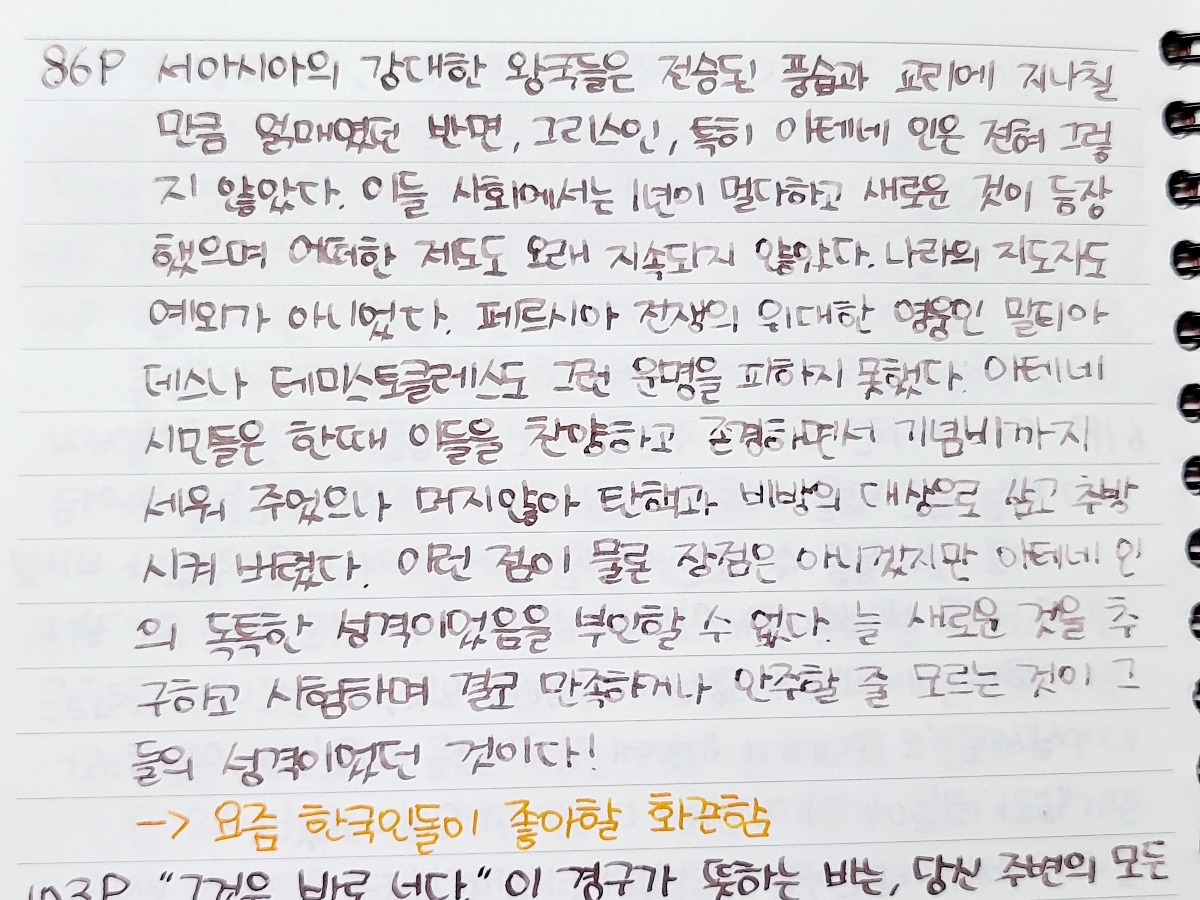 86P 서아시아의 강대한 왕국들은 전승된 풍습과 교리에 지나칠
만큼 얽매였던 반면, 그리스인, 특히 아테네 인은 전혀 그렇
지 않았다. 이들 사회에서는 1년이 멀다하고 새로운 것이 등장
했으며 어떠한 제도도 오래 지속되지 않았다. 나라의 지도자도
예외가 아니었다. 페르시아 전쟁의 위대한 영웅인 말티아
데스나 테미스토클레스도 그런 운명을 피하지 못했다. 아테네
시민들은 한때 이들을 찬양하고 존경하면서 기념비까지
세워 주었으나 머지않아 탄핵과 비방의 대상으로 삼고 추방
시켜 버렸다. 이런 점이 물론 장점은 아니겠지만 아테네 인
의 독특한 성격이었음을 부인할 수 없다. 늘 새로운 것을 추
구하고 시험하며 결코 만족하거나 안주할 줄 모르는 것이 그
들의 성격이었던 것이다!
-> 요즘 한국인들이 좋아할 화끈함
103P "그것은 바로 너다." 이 경구가 뜻하는 바는, 당신 주변의 모든